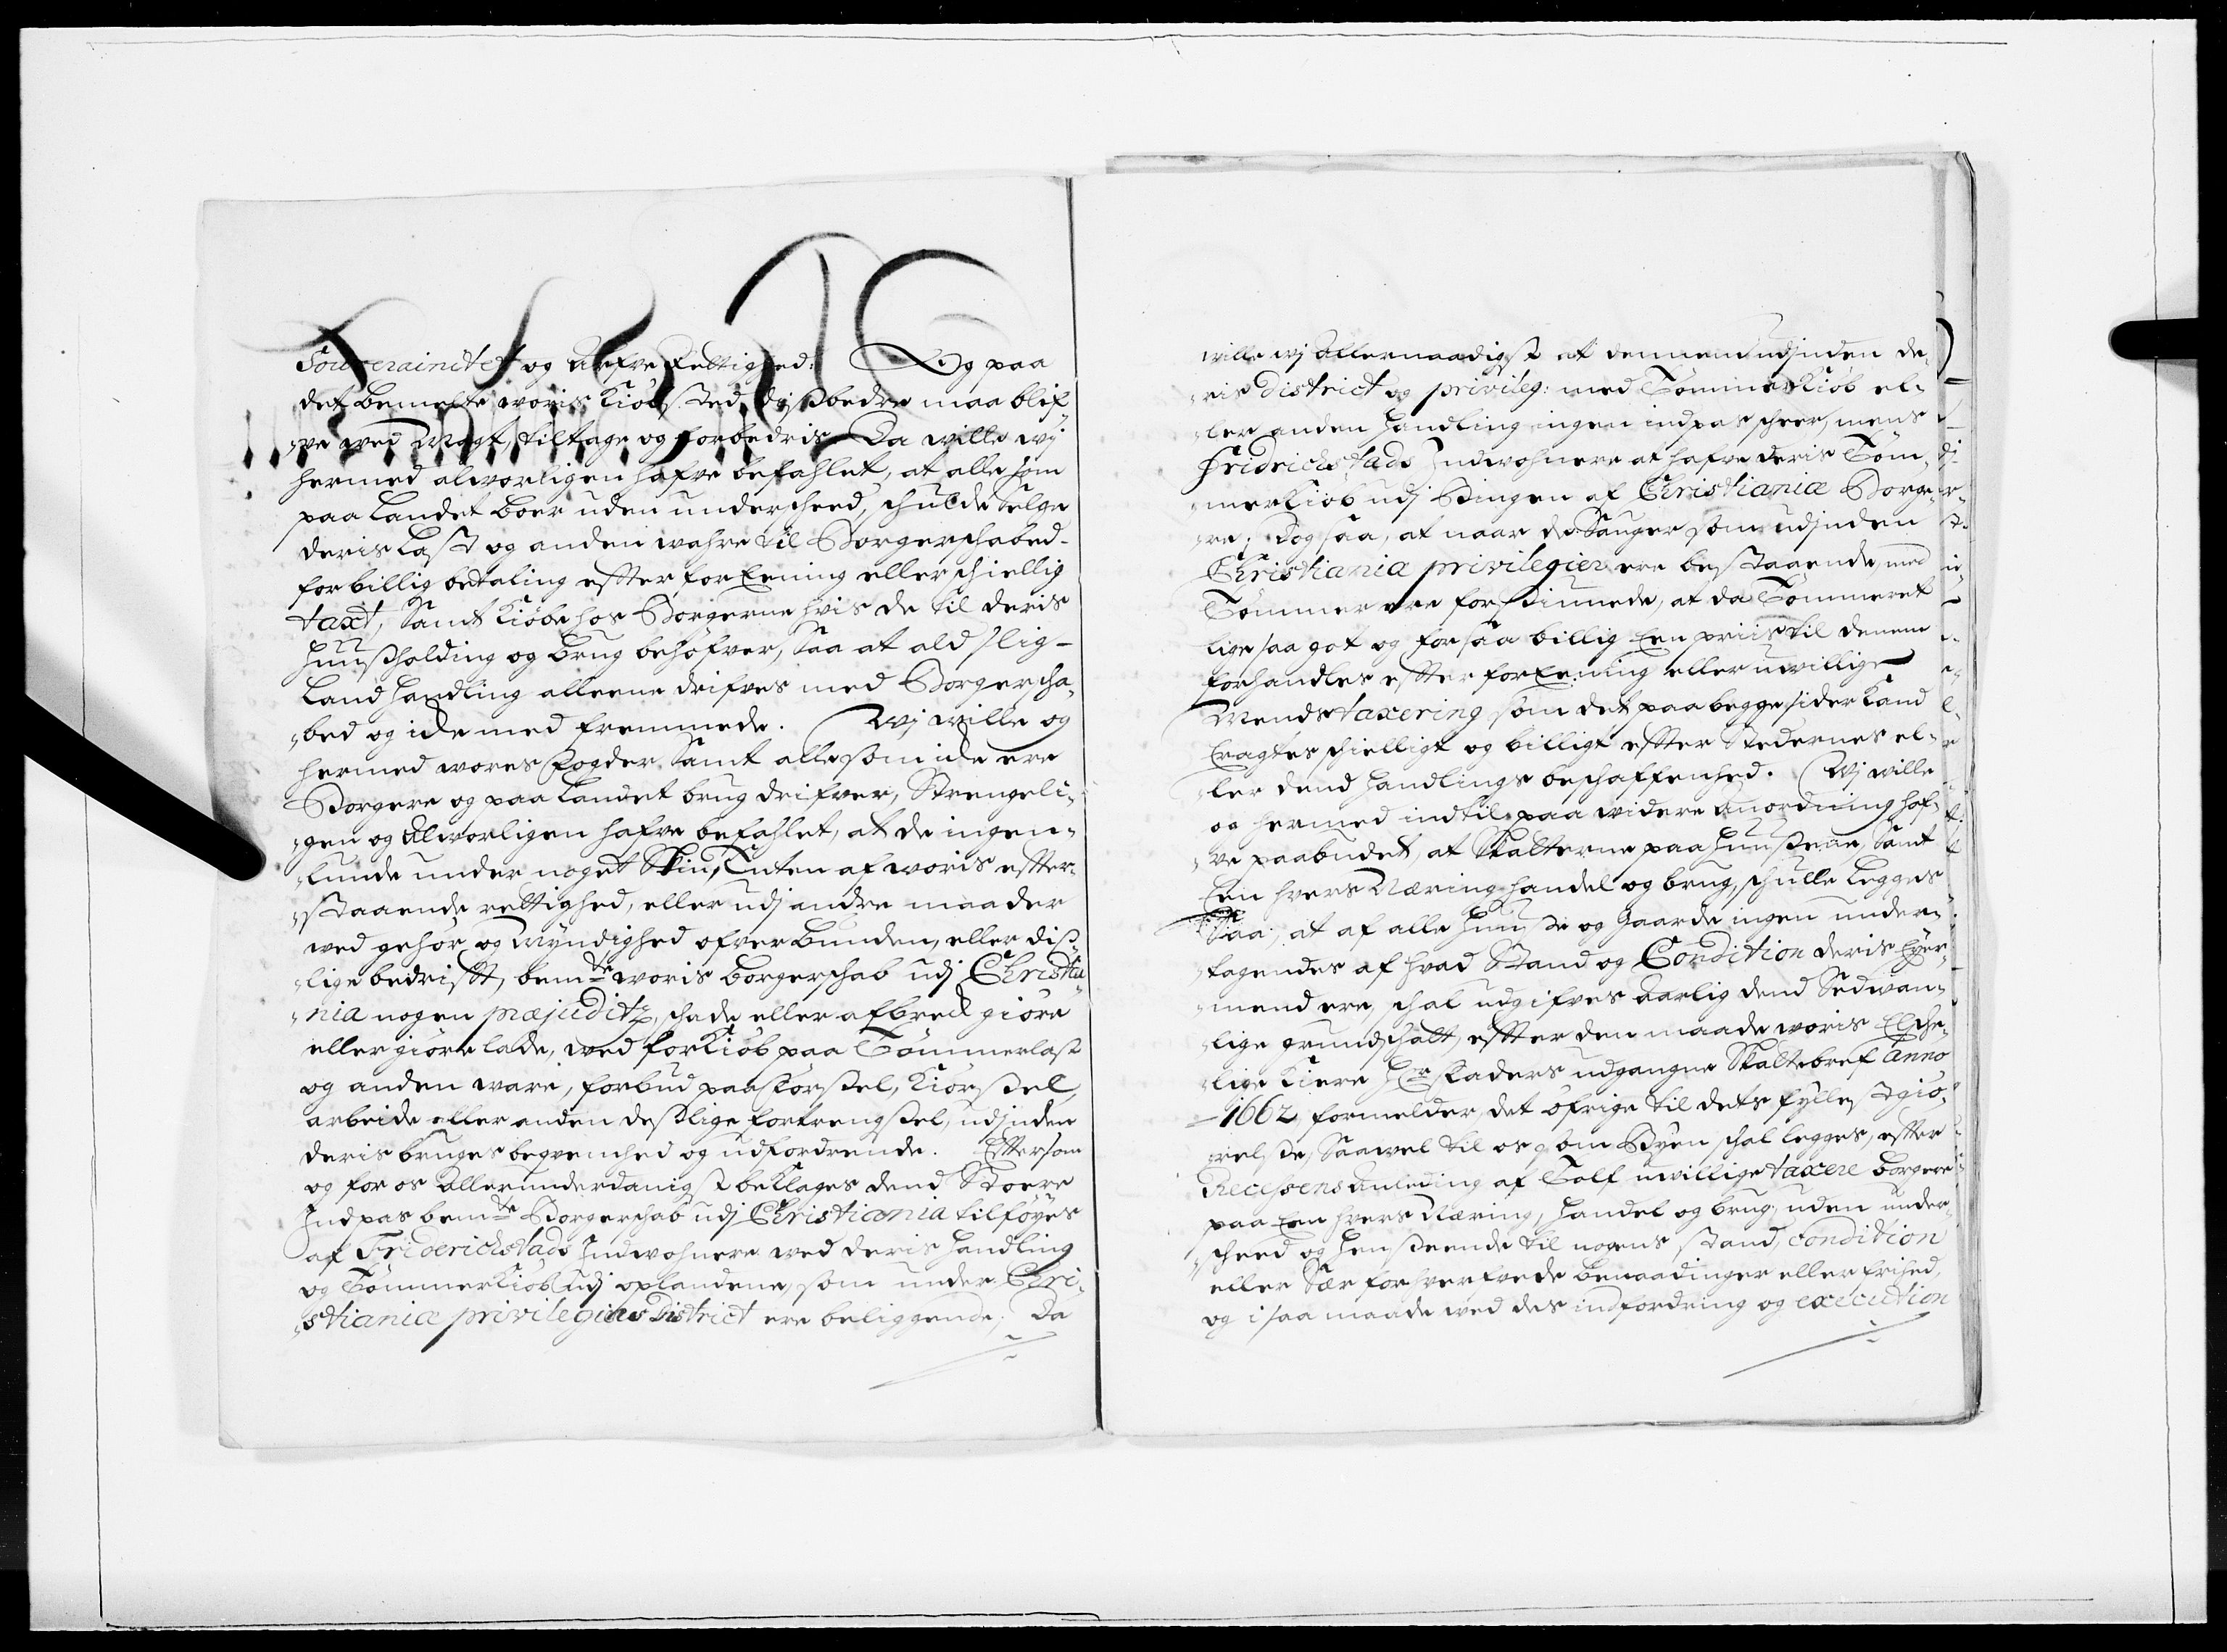 Souverainitet og Arfve Rettighed: Og paa
det bemelte woris Kiöbsted diszbedre maa blif„
„ve wed Magt, tiltage og forbedris Da wille wj
hermed alworligen hafve befahlet, at alle som
paa Landet boer uden underscheed, schulde selge
deris Last og anden wahre til Borgerschabed
for billig betaling effter forEening eller schiellig
taxt, Samt Kiöbe hos Borgerne hvis de til deris
Huuszholding og brug behöfver, Saa at ald slig
Land handling alleene drifves med Borgerscha„
„bed og icke med fremmede. Wj wille og
hermed wores Fogder Samt alle som icke ere
Borgere og paa Landet brug drifver, Strengeli„
„gen og Alworligen hafve befahlet, at de ingen„
„lunde under noget Skin, Enten af woris effter„
„staaende rettighed, eller udj andre maader
wed gehör og Myndighed ofver bunden, eller disz„
„lige bedrifft, bemte woris borgerschab udj Christia„
„nia nogen præjuditz, schade eller afbreck giöre
eller giöre lade, wed forKiöb paa Tömmerlast
og anden ware, forbud paa Förszel, Kiörszel,
arbeide eller anden deszlige fortrengszel, udjnden
deris bruges beqvemhed og udfordrende. Efftersom
og for os Allerunderdanigst beklages dend Stoere
Indpas bemte Borgerschab udj Christiania tilföyes
af Friderichstads Indwohnere wed deris handling
og TömmerKiöb udj oplandene, som under Chri„
„stianiæ privilegiers District ere beliggende, Da
wille wj Allernaadigst at dennem udjnden de„
„ris District og privileg: med TömmerKiöb el„
„ler anden handling ingen indpas scheer, mens
Fridrichstads Indwohnere at hafve deris Töm„
„merKiöb udj Bingen af Christianiæ Borge„
„re; Dog saa, at naar de Sauger som udjnden
Christianiæ privilegier ere bestaaende, med
Tömmer ere forsiunede, at da Tömmeret
lige saa got og for saa billig Een priis til dennem
forhandles effter forEening eller uwillige
Mends taxering som det paa begge sider kand
Eragtes schielligt og billigt effter Stedernes el„
„ler dend handlings beschaffenhed. Wj wille
og hermed indtil paa widere anordning haf„
„ve paabudet, at Skatterne paa Huuszene, Samt
Een hvers Næring handel og brug, schulle Legges
Saa, at af alle Huusze og Gaarde ingen under„
„tagendes af hvad Stand og Condition deris Eyer„
„mend ere, schal udgifves Aarlig dend Sedwan„
„lige grundschatt, effter den maade woris Elsche„
„lige Kiere Hr Faders udgangne Skattebref Anno
1662 formelder, det öfrige til dets fyllestgiö„
„relsze, Saawel til os som Byen schal legges, effter
Recessens Anleding af Tolf uwillige taxere borgere
paa Een hvers Næring, handel og brug, uden under„
„scheed og henszeende til nogens stand, Condition
eller Sær forhverfvede benaadinger eller frihed,
og i saa maade wed des indfordring og execution